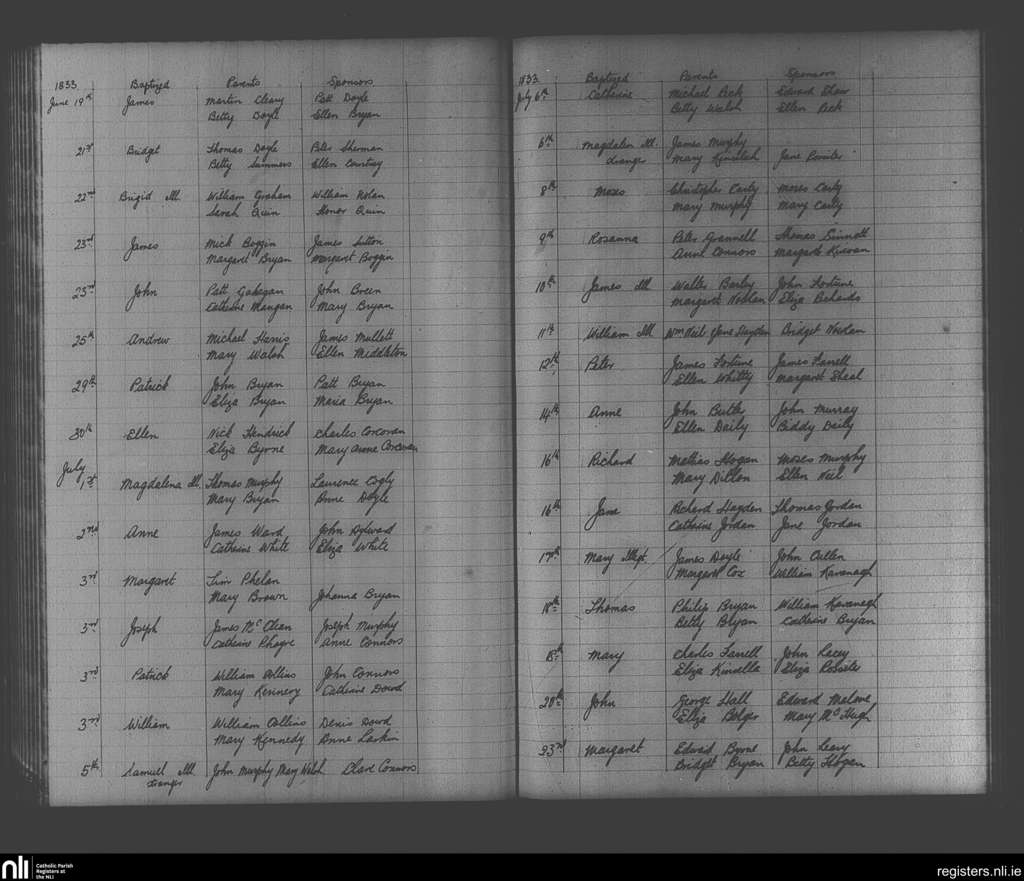 1833 Baptized Parents Sponsors
June 19th James Martin Cleary Patt Doyle
Betty Doyle Ellen Bryan
21st Bridget Thomas Doyle Peter Sherman
Betty Summers Ellen Courtney
22nd Brigid Ill. William Graham William Nolan
Sarah Quin Honor Quin
23rd James Mick Boggin James Sutton
Margaret Bryan Margaret Boggin
23rd John Patt Gahegan John Breen
Catherine Mangan Mary Bryan
25th Andrew Michael Harris James Mullett
Mary Walsh Ellen Middleton
29th Patrick John Bryan Patt Bryan
Eliza Bryan Maria Bryan
30th Ellen Nick Hendrick Charles Corcoran
Eliza Byrne Mary Anne Corcoran
July
1st Magdalena Ill. Thomas Murphy Laurence
Mary Bryan Anne Doyle
2nd Anne James Ward John
Catherine White Eliza White
3rd Margaret Tim Phelan
Mary Brown Johanna Bryan
3rd Joseph James McClean Joseph Murphy
Catherine Anne Connors
3rd Patrick William Collins John Connors
Mary Kennedy Catherine Dowd
3rd William William Collins Denis Dowd
Mary Kennedy Anne Larkin
5th Samuel Ill. John Murphy Mary Walsh Clare Connors
stranger
1833 Baptized Parents Sponsors
July 6th Catherine Michael Peck Edward Shaw
Betty Walsh Ellen Peck
6th Magdalen Ill. James Murphy
stranger Mary Kinselah Jane Rossiter
8th Moses Christopher Carty Moses Carty
Mary Murphy Mary Carty
9th Rosanna Peter Grannell Thomas Sinnott
Anne Connors Margaret Kirwan
10th James Ill. Walter Barley John Fortune
Margaret Nowlan Eliza Richards
11th William Ill. Wm Neil Jane Hayden Bridget Nowlan
12th Peter James Fortune James Farrell
Ellen Whitty Margaret Sheal
14th Anne John Butler John Murray
Ellen Daily Biddy Daily
16th Richard Mathias Hogan Moses Murphy
Mary Dillon Ellen Neil
16th Jane Richard Hayden Thomas Jordan
Catherine Jordan Jane Jordan
17th Mary Illegt. James Doyle John Cullen
Margaret Cox William Kavanagh
18th Thomas Philip Bryan William Kavanagh
Betty Bryan Catherine Bryan
18th Mary Charles Farrell John Lacey
Eliza Kinsella Eliza Rossiter
20th John George Hall Edward Malone
Eliza Bolger Mary McHugh
23rd Margaret Edward Byrne John Leary
Bridget Bryan Betty Hogan
nli Catholic Parish
Registers at
the NLI
registers.nli.ie